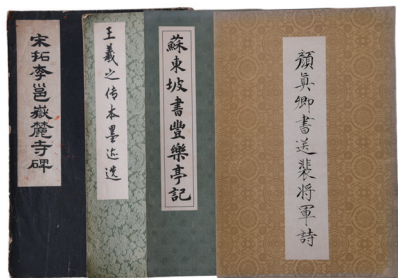 宋拓李邕嶽麓寺碑
王羲之传本墨迹选
蘇東坡書豐樂亭記
顏真卿書送裴將軍詩